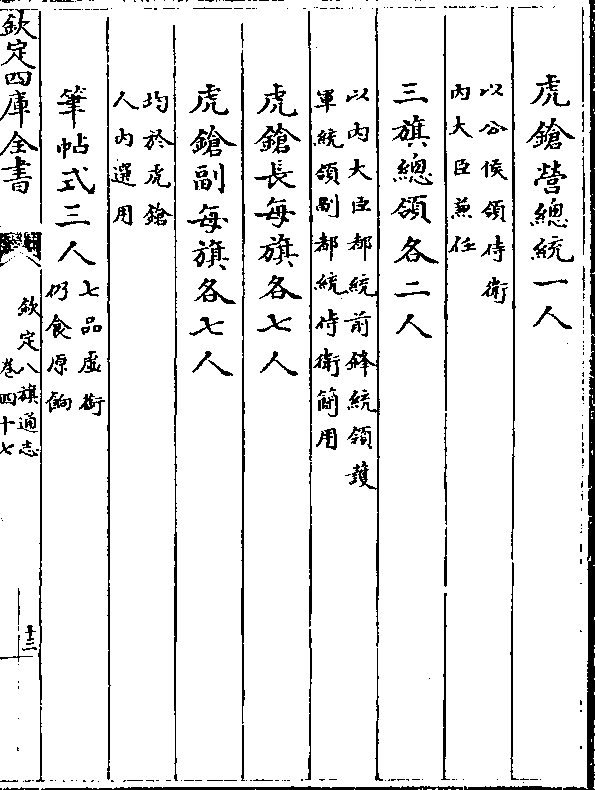 虎鎗營總統一人
以公侯領侍衛
內大臣兼任
三旗總領各二人
以內大臣都統前鋒統領護
軍統領副都統侍衛簡用
虎鎗長每旗各七人
虎鎗副每旗各七人
均於虎鎗
人內選用
筆帖式三人
七品虛銜
仍食原餉
欽定四庫全書
欽定八旗通志
卷四十七
十三